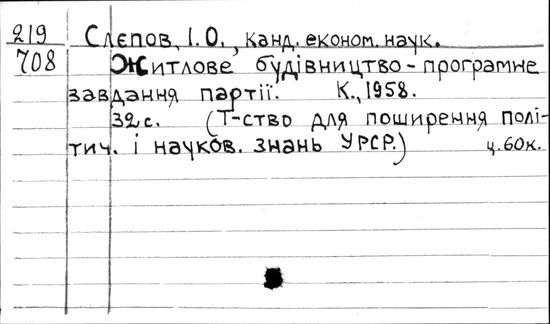 219 Слєпов, І.О., канд. економ. наук.
708 Житлове будівництво - програмне
завдання партії. К., 1958.
32с. (Т-ство для поширення полі-
тич. і науков. знань УРСР.) ц. 60к.